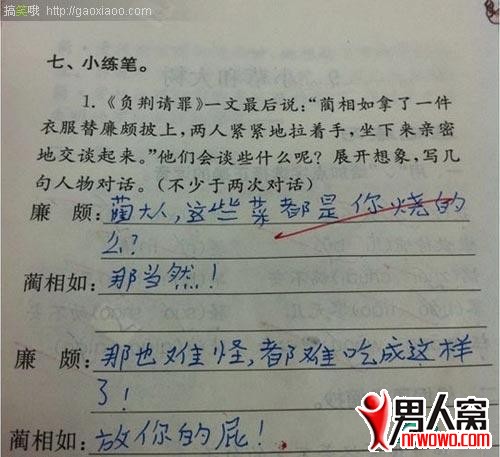 搞笑哦 http://gaoxiaoo.com
七、小练笔。
1.《负荆请罪》一文最后说:“蔺相如拿了一件
衣服替廉颇披上,两人紧紧地拉着手,坐下来亲密
地交谈起来。”他们会谈些什么呢?展开想象,写几
句人物对话。(不少于两次对话)
廉 颇:蔺大人,这些菜都是你烧的
么?
蔺相如:那当然!
廉 颇:那也难怪,都难吃成这样
了!
蔺相如:放你的屁!
男人窝
nrwowo.com